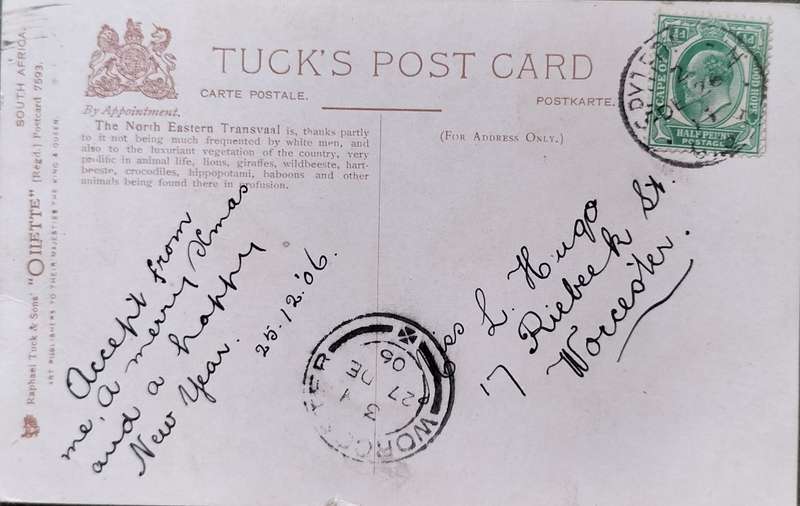 TUCK'S POST CARD
CARTE POSTALE.
POSTKARTE.
By Appointment.
(FOR ADDRESS ONLY.)
The North Eastern Transvaal is, thanks partly
to it not being much frequented by white men, and
also to the luxuriant vegetation of the country, very
prolific in animal life, lions, giraffes, wildbeeste, hart-
beeste, crocodiles, hippopotami, baboons and other
animals being found there in profusion.
Raphael Tuck & Sons' "OILETTE" (Regd.) Postcard 7593.
SOUTH AFRICA.
ART PUBLISHERS TO THEIR MAJESTIES THE KING & QUEEN.
Accept from
me, a merry Xmas
and a happy
New Year.
25.12.'06.
L. Hugo
17 Riebeek St.
Worcester.
WORCESTER
3
27 DE
06
CAPE OF GOOD HOPE
HALF PENNY
POSTAGE